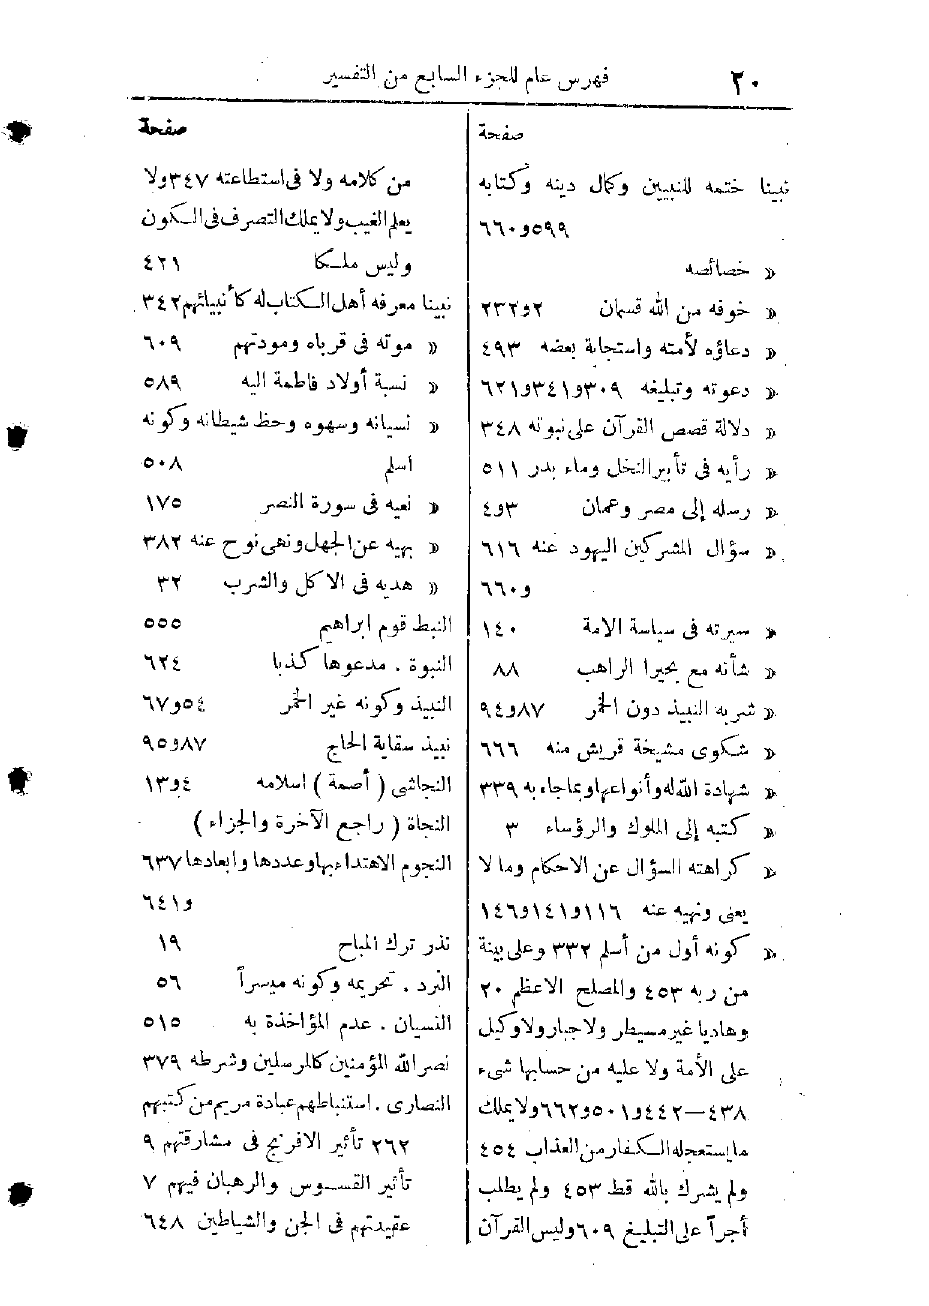 ٢٠
فهرس عام للجزء السابع من التفسير
صفحة
نبينا ختمه للنبيين وكمال دينه وكتابه
٥٩٩و٦٦٠
« خصائصه
« خوفه من الله قسمان ٢و٢٣٢
« دعاؤه لأمته واستجابة بعضه ٤٩٣
« دعوته وتبليغه ٣٠٩و٣٤١و٦٢١
« دلالة قصص القرآن على نبوته ٣٤٨
« رأيه فى تأبير النخل وماء بدر ٥١١
« رسله إلى مصر وعمان ٣و٤
« سؤال المشركين اليهود عنه ٦١٦
و٦٦٠
« سيرته فى سياسة الامة ١٤٠
« شأنه مع بحيرا الراهب ٨٨
« شربه النبيذ دون الخمر ٨٧و٩٤
« شكوى مشيخة قريش منه ٦٦٦
« شهادة الله له وأنواعها وبما جاء به ٣٣٩
« كتبه إلى الملوك والرؤساء ٣
« كراهته السؤال عن الاحكام وما لا
يعنى ونهيه عنه ١١٦و١٤١و١٤٦
« كونه أول من أسلم ٣٣٢ وعلى بينة
من ربه ٤٥٣ والمصلح الاعظم ٢٠
وهاديا غير مسيطر ولا جبار ولا وكيل
على الأمة ولا عليه من حسابها شىء
٤٣٨—٤٤٢و٥٠١و٦٦٢ ولا يملك
ما يستعجله الكفار من العذاب ٤٥٤
ولم يشرك بالله قط ٤٥٣ ولم يطلب
أجراً على التبليغ ٦٠٩ وليس القرآن
صفحة
من كلامه ولا فى استطاعته ٣٤٧ ولا
يعلم الغيب ولا يملك التصرف فى الكون
وليس ملكا ٤٢١
نبينا معرفه أهل الكتاب له كأنبيائهم ٣٤٢
« موته فى قرباه ومودتهم ٦٠٩
« نسبة أولاد فاطمة اليه ٥٨٩
« نسيانه وسهوه وحظ شيطانه وكونه
أسلم ٥٠٨
« نعيه فى سورة النصر ١٧٥
« نهيه عن الجهل ونهى نوح عنه ٣٨٢
« هديه فى الاكل والشرب ٣٢
النبط قوم ابراهيم ٥٥٥
النبوة . مدعوها كذبا ٦٢٤
النبيذ وكونه غير الخمر ٥٤و٦٧
نبيذ سقاية الحاج ٨٧و٩٥
النجاشى ( أصمة ) اسلامه ٤و١٣
النجاة ( راجع الآخرة والجزاء )
النجوم الاهتداء بها وعددها وابعادها ٦٣٧
و٦٤١
نذر ترك المباح ١٩
النرد . تحريمه وكونه ميسراً ٥٦
النسيان . عدم المؤاخذة به ٥١٥
نصر الله المؤمنين كالمرسلين وشرطه ٣٧٩
النصارى . استنباطهم عبادة مريم من كتبهم
٢٦٢ تأثير الافرنج فى مشارقتهم ٩
تأثير القسوس والرهبان فيهم ٧
عقيدتهم فى الجن والشياطين ٦٤٨